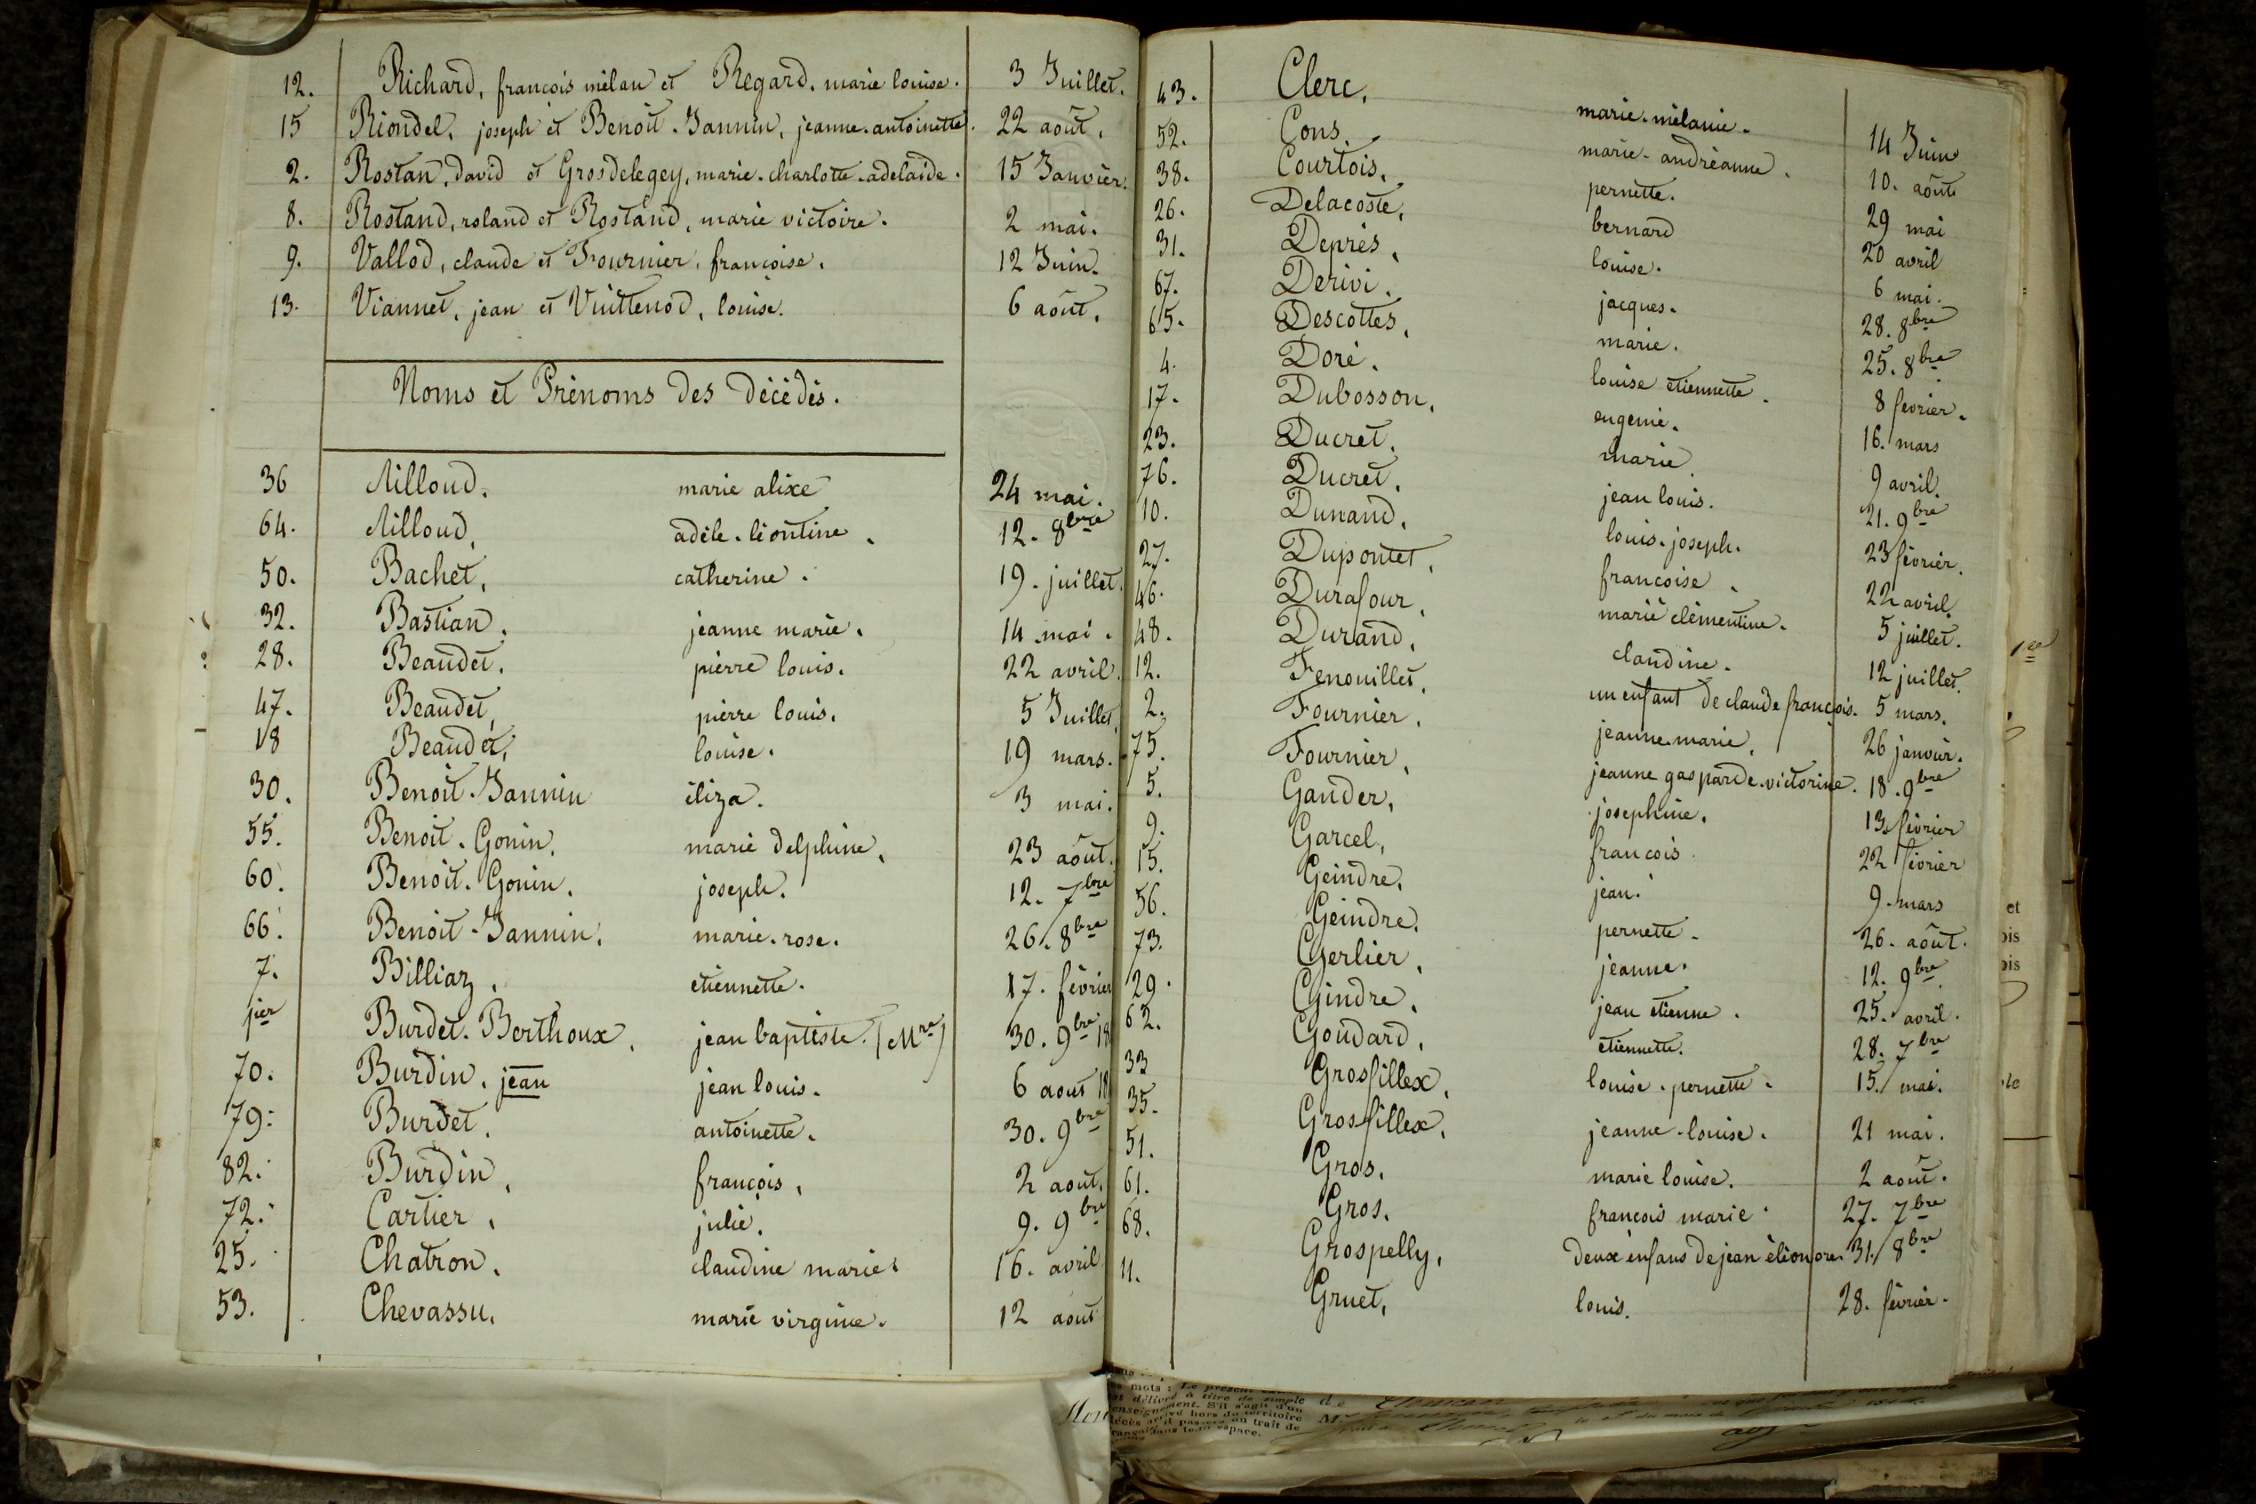 12. Richard, françois mélan et Regard, marie louise. 3 Juillet.
15 Riondel, joseph et Benoit-Jannin, jeanne-antoinette. 22 août.
2. Rostan, david et Grosdelegey, marie-charlotte-adelaïde. 15 Janvier.
8. Rostand, roland et Rostand, marie victoire. 2 mai.
9. Vallod, claude et Fournier, françoise. 12 Juin.
13. Viannet, jean et Vuittenod, louise. 6 août.
Noms et Prénoms des décédés.
36 Ailloud. marie alixe 24 mai.
64. Ailloud, adèle-léontine. 12. 8bre
50. Bachet, catherine. 19. juillet.
32. Bastian. jeanne marie. 14 mai.
28. Beaudet. pierre louis. 22 avril.
47. Beaudet, pierre louis. 5 Juillet
18 Beaudet, louise. 19 mars.
30. Benoit-Jannin éliza. 3 mai.
55. Benoit-Gonin. marie delphine. 23 août.
60. Benoit-Gonin. joseph. 12. 7bre
66. Benoit-Jannin. marie-rose. 26. 8bre
7. Billiaz. etiennette. 17. février
1er Burdet-Berthoux, jean baptiste. (Mre) 30. 9bre 18
70. Burdin, jean jean louis. 6 aout 18
79. Burdet. antoinette. 30. 9bre
82. Burdin, françois, 2 aout.
72. Cartier, julie. 9. 9bre
25. Chatron. claudine marie. 16. avril
53. Chevassu. marie virginie. 12 aout
43. Clerc. marie-mélanie. 14 Juin
52. Cons. marie-andréanne. 10. août
38. Courtois. pernette. 29 mai
26. Delacoste, bernard 20 avril
31. Deprés, louise. 6 mai.
67. Derivi. jacques. 28. 8bre
65. Descottes, marie. 25. 8bre
4. Doré. louise etiennette. 8 fevrier.
17. Dubosson, eugenie. 16. mars
23. Ducret. marie 9 avril.
76. Ducret, jean louis. 21. 9bre
10. Dunand, louis-joseph. 23 février.
27. Dupontet, francoise. 22 avril.
46. Durafour, marie clémentine. 5 juillet.
48. Durand, claudine. 12 juillet.
12. Fenouillet, un enfant de claude françois. 5 mars.
2. Fournier, jeanne marie. 26 janvier.
75. Fournier, jeanne gasparde-victorine. 18. 9bre
5. Gander, josephine. 13. février
9. Garcel, francois. 22 février
15. Geindre. jean. 9. mars
56. Geindre. pernette. 26. août.
73. Gerlier, jeanne. 12. 9bre
29. Gindre, jean etienne. 25. avril.
62. Goudard, etiennette. 28. 7bre
33 Grosfillex, louise-pernette. 15. mai.
35. Grosfillex, jeanne-louise. 21 mai.
51. Gros. marie louise. 2 août.
61. Gros. francois marie. 27. 7bre
68. Grospelly, deux enfans de jean éléonore. 31. 8bre
11. Gruet, louis. 28. février.
et
ois
ois